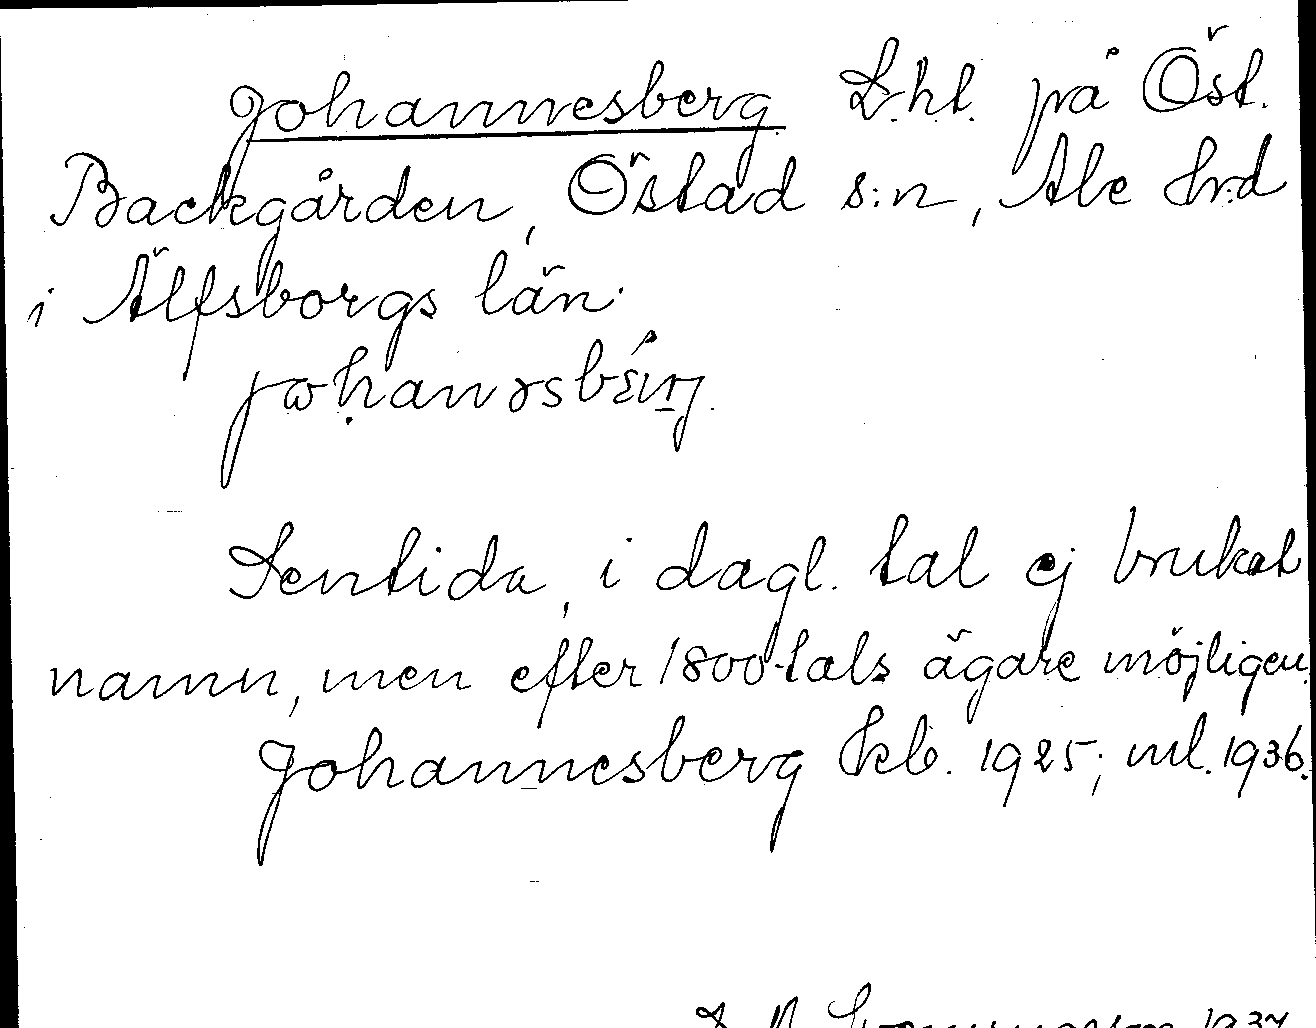 Johannesberg L.ht. på Öst.
Backgården, Östad s:n, Ale hrd
i Älfsborgs län.
Sentida, i dagl. tal ej brukat
namn, men efter 1800-tals ägare möjligen.
Johannesberg kb. 1925; ml. 1936.
1937